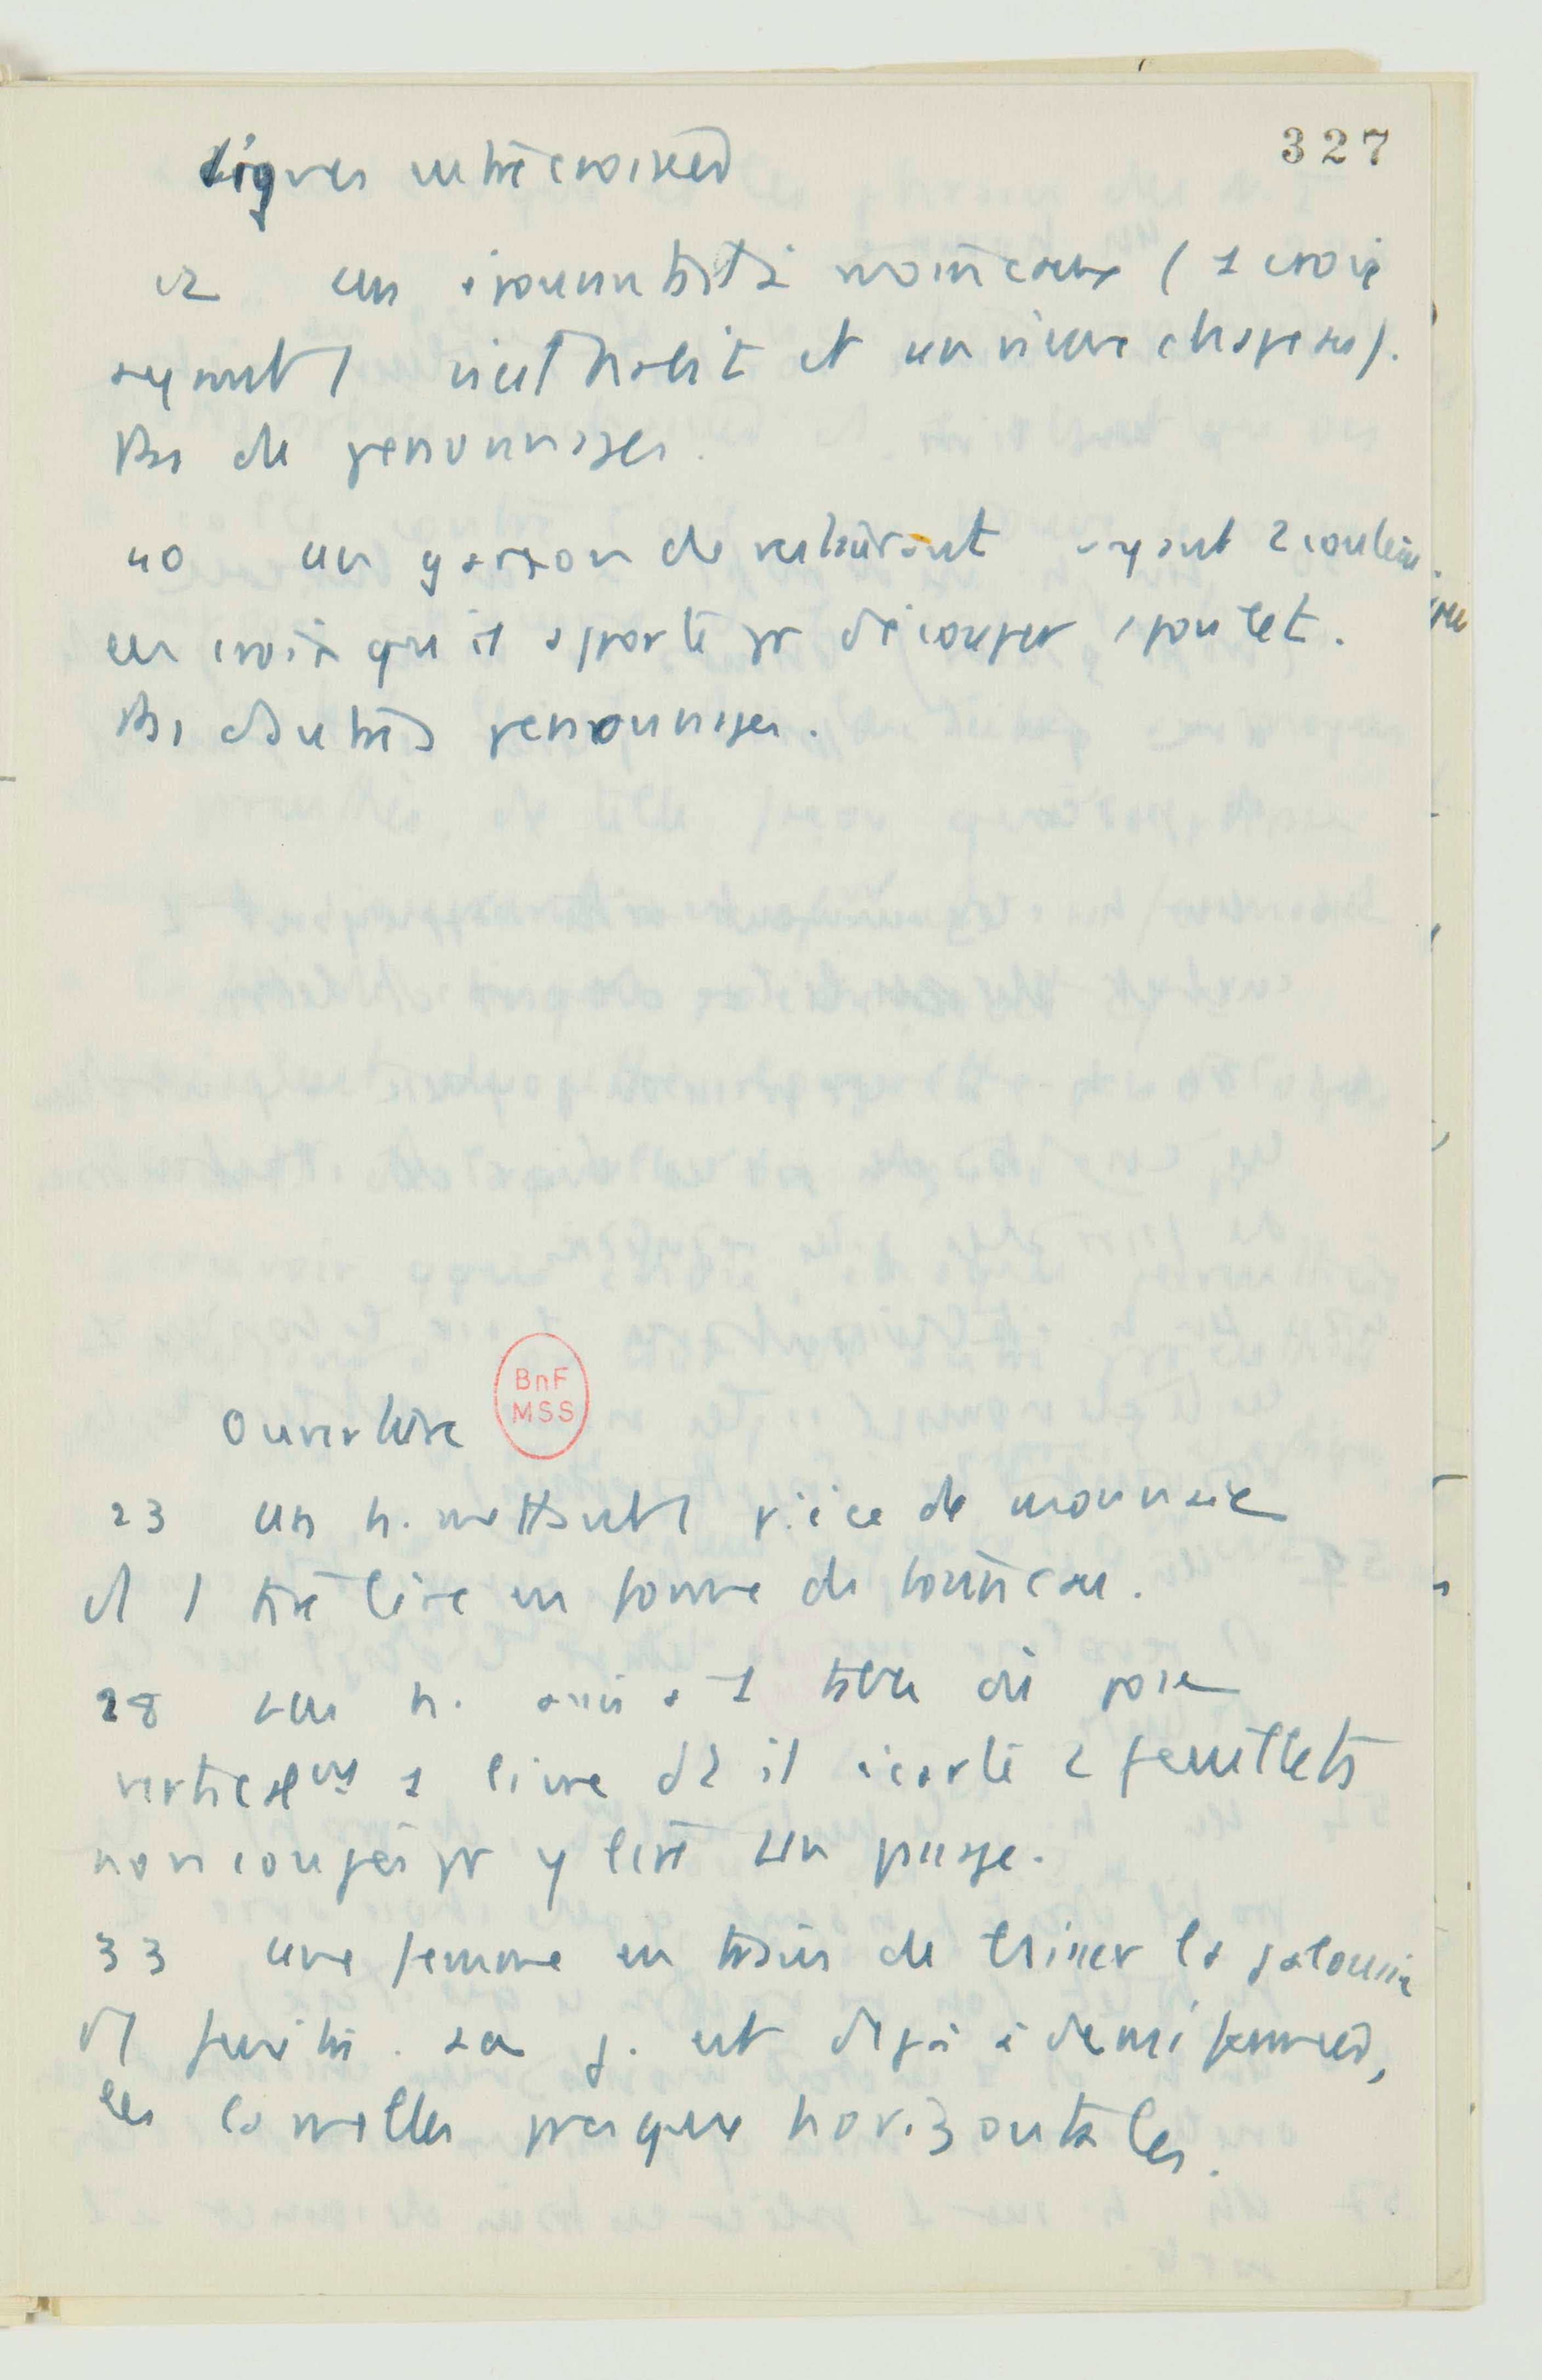 327
lignes entrecroisées
12 un épouvantail à moineaux (1 croix
ayant 1 vieil habit et un vieux chapeau).
Pas de personnages.
40 un garçon de restaurant ayant 2 couteaux
en croix qu'il apporte pr découper 1 poulet.
Pas d'autres personnages.
Ouverture
BnF
MSS
23 un h. mettant 1 pièce de monnaie
ds 1 tire lire en forme de tonneau.
28 un h. assis à 1 table où pose
verticalemt 1 livre dt il écarte 2 feuillets
non coupés pr y lire un passage.
33 une femme en train de baisser la jalousie
d'1 fenêtre. La j. est déjà à demi fermée,
les lamelles presque horizontales.